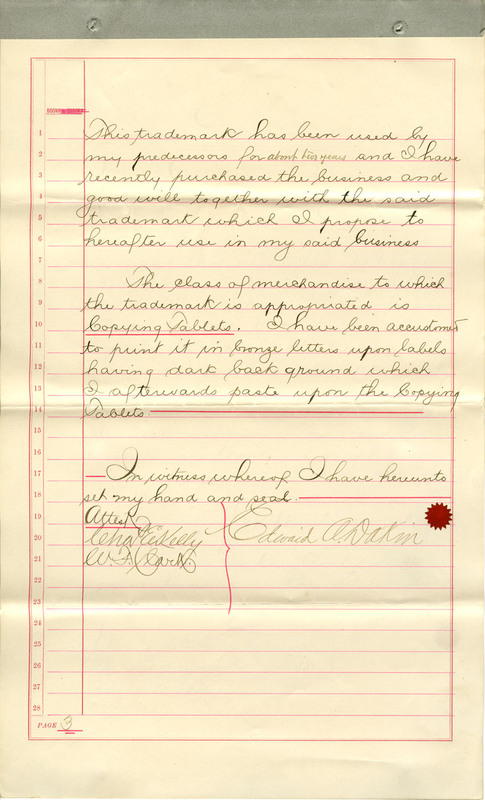 This trademark has been used by
1
my predecessors for about two years and I have
2
recently purchased the business and
3
good will together with the said
4
trademark which I propose to
5
hereafter use in my said business
6
7
The class of merchandise to which
8
the trademark is appropriated is
9
Copying Tablets. I have been accustomed
10
to print it in bronze letters upon labels
11
having dark back ground which
12
I afterwards paste upon the Copying
13
Tablets
14
15
16
In witness whereof I have hereunto
17
set my hand and seal.
18
Attest
19
Edward A. Dakin
20
W. F. Clark.
21
22
23
24
25
26
27
28
PAGE 3